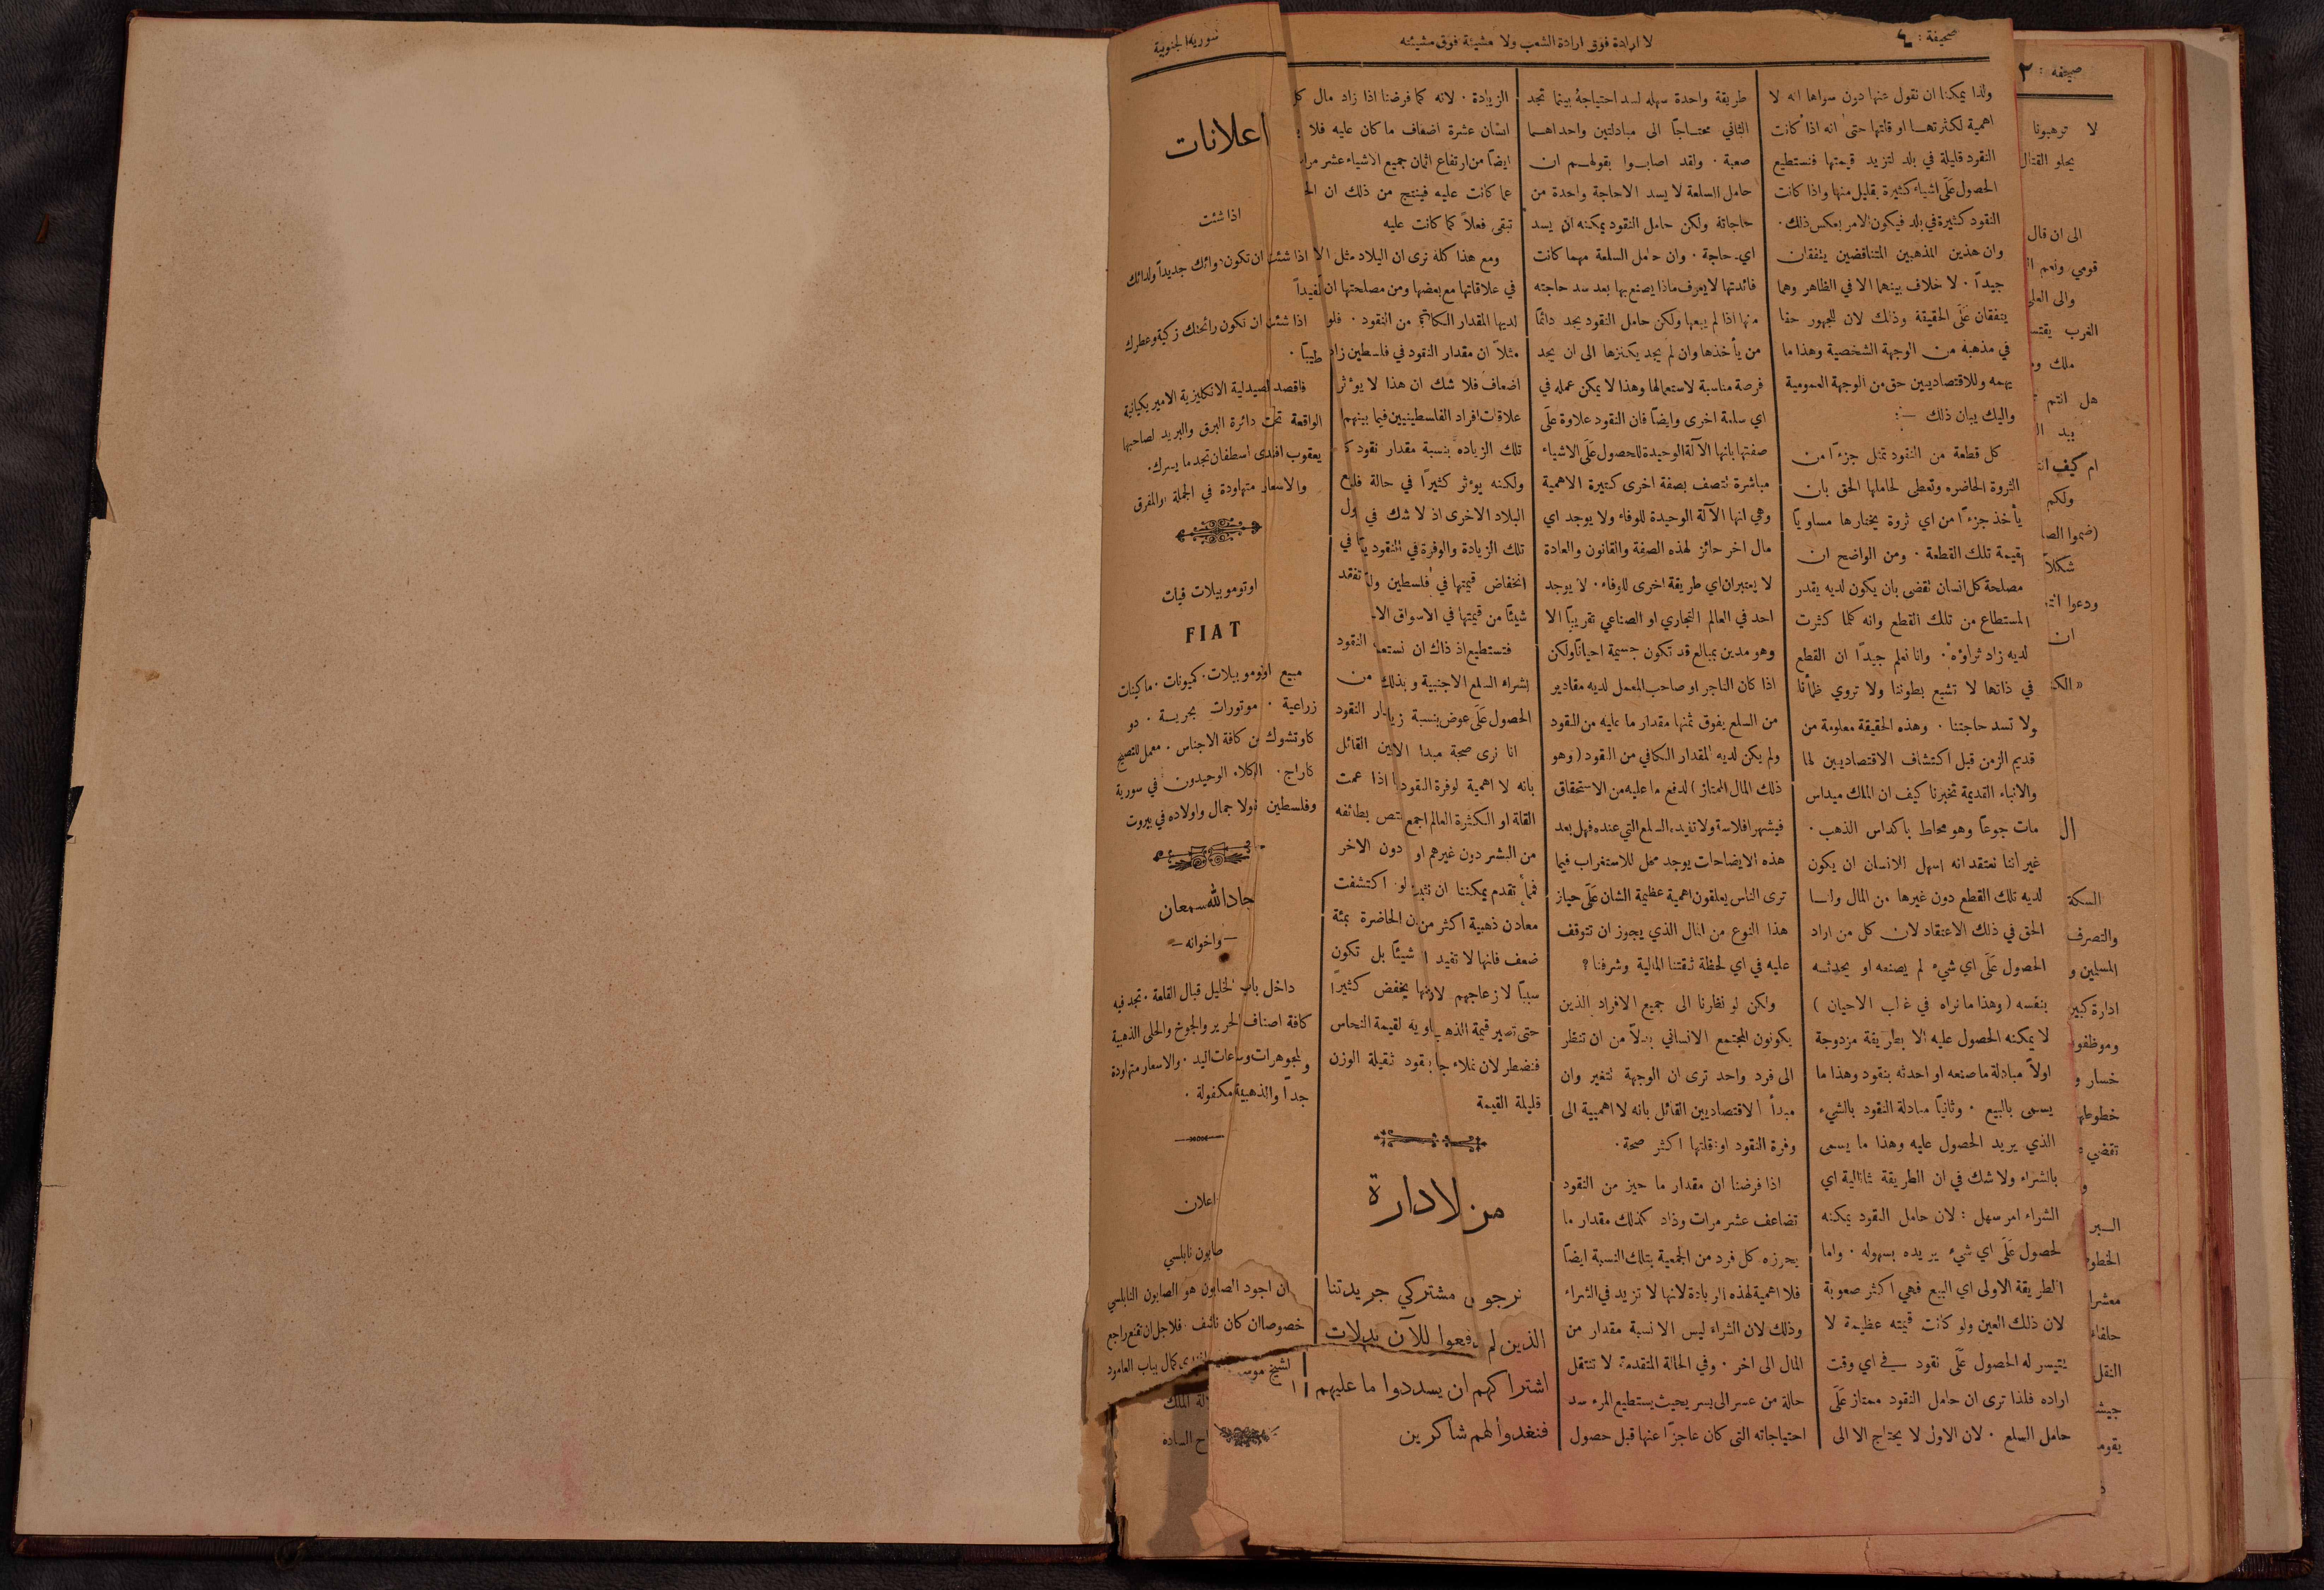 صحيفة : ٤
لا ارادة فوق ارادة الشعب ولا مشيئة فوق مشيئته
سورية الجنوبية
ولذا يمكننا ان نقول عنها دون سواها انه لا
اهمية لكثرتها او قلتها حتى انه اذا كانت
النقود قليلة في بلد لتزيد قيمتها فنستطيع
الحصول على اشياء كثيرة بقليل منها واذا كانت
النقود كثيرة في بلد فيكون الامر بعكس ذلك .
وان هذين المذهبين المتناقضين يتفقان
جيداً . لا خلاف بينهما الا في الظاهر وهما
يتفقان على الحقيقة وذلك لان للجمهور حقا
في مذهبه من الوجهة الشخصية وهذا ما
يهمه وللاقتصاديين حق من الوجهة العمومية
واليك بيان ذلك —:
كل قطعة من النقود تمثل جزءاً من
الثروة الحاضره وتعطي لحاملها الحق بان
يأخذ جزءاً من اي ثروة يختارها مساوياً
لقيمة تلك القطعة . ومن الواضح ان
مصلحة كل انسان تقضي بان يكون لديه بقدر
المستطاع من تلك القطع وانه كلما كثرت
لديه زاد ثراؤه . وانا نعلم جيداً ان القطع
في ذاتها لا تشبع بطوننا ولا تروي ظمأنا
ولا تسد حاجتنا . وهذه الحقيقة معلومة من
قديم الزمن قبل اكتشاف الاقتصاديين لها
والانباء القديمة تخبرنا كيف ان الملك ميداس
مات جوعاً وهو محاط باكداس الذهب .
غير اننا نعتقد انه اسهل للانسان ان يكون
لديه تلك القطع دون غيرها من المال ولنا
الحق في ذلك الاعتقاد لان كل من اراد
الحصول على اي شيء لم يصنعه او يحدثه
بنفسه ( وهذا ما نراه في غالب الاحيان )
لا يمكنه الحصول عليه الا بطريقة مزدوجة
اولاً مبادلة ما صنعه او احدثه بنقود وهذا ما
يسمى بالبيع . وثانياً مبادلة النقود بالشيء
الذي يريد الحصول عليه وهذا ما يسمى
بالشراء ولا شك في ان الطريقة الثانية اي
الشراء امر سهل : لان حامل النقود يمكنه
لحصول على اي شيء يريده بسهوله . واما
الطريقة الاولى اي البيع فهي اكثر صعوبة
لان ذلك العين ولو كانت قيمته عظيمة لا
يتيسر له الحصول على نقود في اي وقت
اراده فلذا ترى ان حامل النقود ممتاز على
حامل السلع . لان الاول لا يحتاج الا الى
طريقة واحدة سهله لسد احتياجه بينما تجد
الثاني محتاجاً الى مبادلتين واحداهما
صعبة . ولقد اصابوا بقولهم ان
حامل السلعة لا يسد الا حاجة واحدة من
حاجاته ولكن حامل النقود يمكنه ان يسد
اي حاجة . وان حامل السلعة مهما كانت
فائدتها لا يعرف ماذا يصنع بها بعد سد حاجته
منها اذا لم يبعها ولكن حامل النقود يجد دائماً
من يأخذها وان لم يجد يكنزها الى ان يجد
فرصة مناسبة لاستعمالها وهذا لا يمكن عمله في
اي سلعة اخرى وايضاً فان النقود علاوة على
صفتها بانها الآلة الوحيدة للحصول على الاشياء
مباشرة تتصف بصفة اخرى كثيرة الاهمية
وهي انها الآلة الوحيدة للوفاء ولا يوجد اي
مال اخر حائز لهذه الصفة والقانون والعادة
لا يعتبران اي طريقة اخرى للوفاء . لا يوجد
احد في العالم التجاري او الصناعي تقريباً الا
وهو مدين بمبالغ قد تكون جسيمة احياناً ولكن
اذا كان التاجر او صاحب المعمل لديه مقادير
من السلع يفوق ثمنها مقدار ما عليه من النقود
ولم يكن لديه المقدار الكافي من النقود ( وهو
ذلك المال الممتاز ) لدفع ما عليه من الاستحقاق
فيشهر افلاسه ولا تفيده السلع التي عنده فهل بعد
هذه الايضاحات يوجد محل للاستغراب فيما
ترى الناس يعلقون اهمية عظيمة الشان على حياز
هذا النوع من المال الذي يجوز ان تتوقف
عليه في اي لحظة ثقتنا المالية وشرفنا ؟
ولكن لو نظرنا الى جميع الافراد الذين
يكونون المجتمع الانساني بدلاً من ان تنظر
الى فرد واحد ترى ان الوجهة تتغير وان
مبدأ الاقتصاديين القائل بانه لا اهمية الى
وفرة النقود او قلتها اكثر صحة .
اذا فرضنا ان مقدار ما حيز من النقود
تضاعف عشر مرات وذاد كذلك مقدار ما
يحرزه كل فرد من الجمعية بتلك النسبة ايضاً
فلا اهمية لهذه الزيادة لانها لا تزيد في الشراء
وذلك لان الشراء ليس الا نسبة مقدار من
المال الى اخر . وفي الحالة المتقدمة لا تنتقل
حالة من عسر الى يسر بحيث يستطيع المرء سد
احتياجاته التي كان عاجزاً عنها قبل حصول
الزيادة . لانه كما فرضنا اذا زاد مال كل
انسان عشرة اضعاف ما كان عليه فلا
ايضاً من ارتفاع اثمان جميع الاشياء عشر مرات
عما كانت عليه فينتج من ذلك ان
تبقى فعلاً كما كانت عليه
ومع هذا كله نرى ان البلاد مثل
في علاقاتها مع بعضها ومن مصلحتها ان
لديها المقدار الكافي من النقود . فلو
مثلاً ان مقدار النقود في فلسطين زاد
اضعاف فلا شك ان هذا لا يوءثر
علاقات افراد الفلسطينيين فيما بينهم
تلك الزياده بنسبة مقدار نقود
ولكنه يوءثر كثيراً في حالة
البلاد الاخرى اذ لا شك في
تلك الزيادة والوفرة في النقود
انخفاض قيمتها في فلسطين ولا تفقد
شيئاً من قيمتها في الاسواق
فتستطيع اذ ذاك ان نستعمل النقود
لشراء السلع الاجنبية وبذلك من
الحصول على عوض بنسبة النقود
انا نرى صحة مبدا القائل
بانه لا اهمية لوفرة النقود اذا عمت
القلة او الكثرة العالم اجمع بطائفه
من البشر دون غيرهم او دون الاخر
فمما تقدم يمكننا ان لو اكتشفت
معادن ذهبية اكثر من الحاضرة بمئة
ضعف فانها لا تفيد شيئاً بل تكون
سبباً لازعاجهم يخفض كثيراً
حتى تصير قيمة الذهب لقيمة النحاس
فنضطر لان نملاء بنقود ثقيلة الوزن
قليلة القيمة
من لادارة
نرجو مشتركي جريدتنا
الذين لم يدفعوا للآن بدلات
اشتراكهم ان يسددوا ما عليهم
فنغدوا لهم شاكرين
اعلانات
اذا شئت
اذا شئت ان تكون جديداً ولذائك
اذا شئت ان تكون رائحتك زكية وعطرك
طيباً .
فاقصد لصيدلية الانكليزية الاميريكيانية
الواقعة تحت دائرة البرق والبريد لصاحبها
يعقوب افندى اسطفان تجد ما يسرك .
والاسعار متهاودة في الجملة والمفرق
اوتوموبيلات فيات
FIAT
مبيع اوتوموبيلات . كميونات . ماكينات
زراعية . موتورات بحرية . دو
كاوتشوك من كافة الاجناس . معمل للتصليح
كاراج . الوكلاء الوحيدون في سورية
وفلسطين نولا جمال واولاده في بيروت
جاد الله سمعان
— واخوانه —
داخل باب الخليل قبال القلعة . تجد فيه
كافة اصناف الحرير والجوخ والحلى الذهبية
والمجوهرات وساعات اليد . والاسعار متهاودة
جداً والذهبية مكفولة .
اعلان
صابون نابلسي
ان اجود الصابون هو الصابون النابلسي
خصوصا ان كان نظيف . فلاجل ان تقنع راجع
كمال بباب العامود
الشيخ
الملك
السادة
صحيفة : ٢
لا ترهبونا
يحلو القتال
الى ان قال
قومي ونعم
والى العلى
الغرب
ملك
هل انتم
بيد
ام كيف
ولكم
شكلاً
ودعوا
ان
السكة
والتصرف
المسلمين و
ادارة
خسار و
تقضي
و
السير
حلفاء
النقل